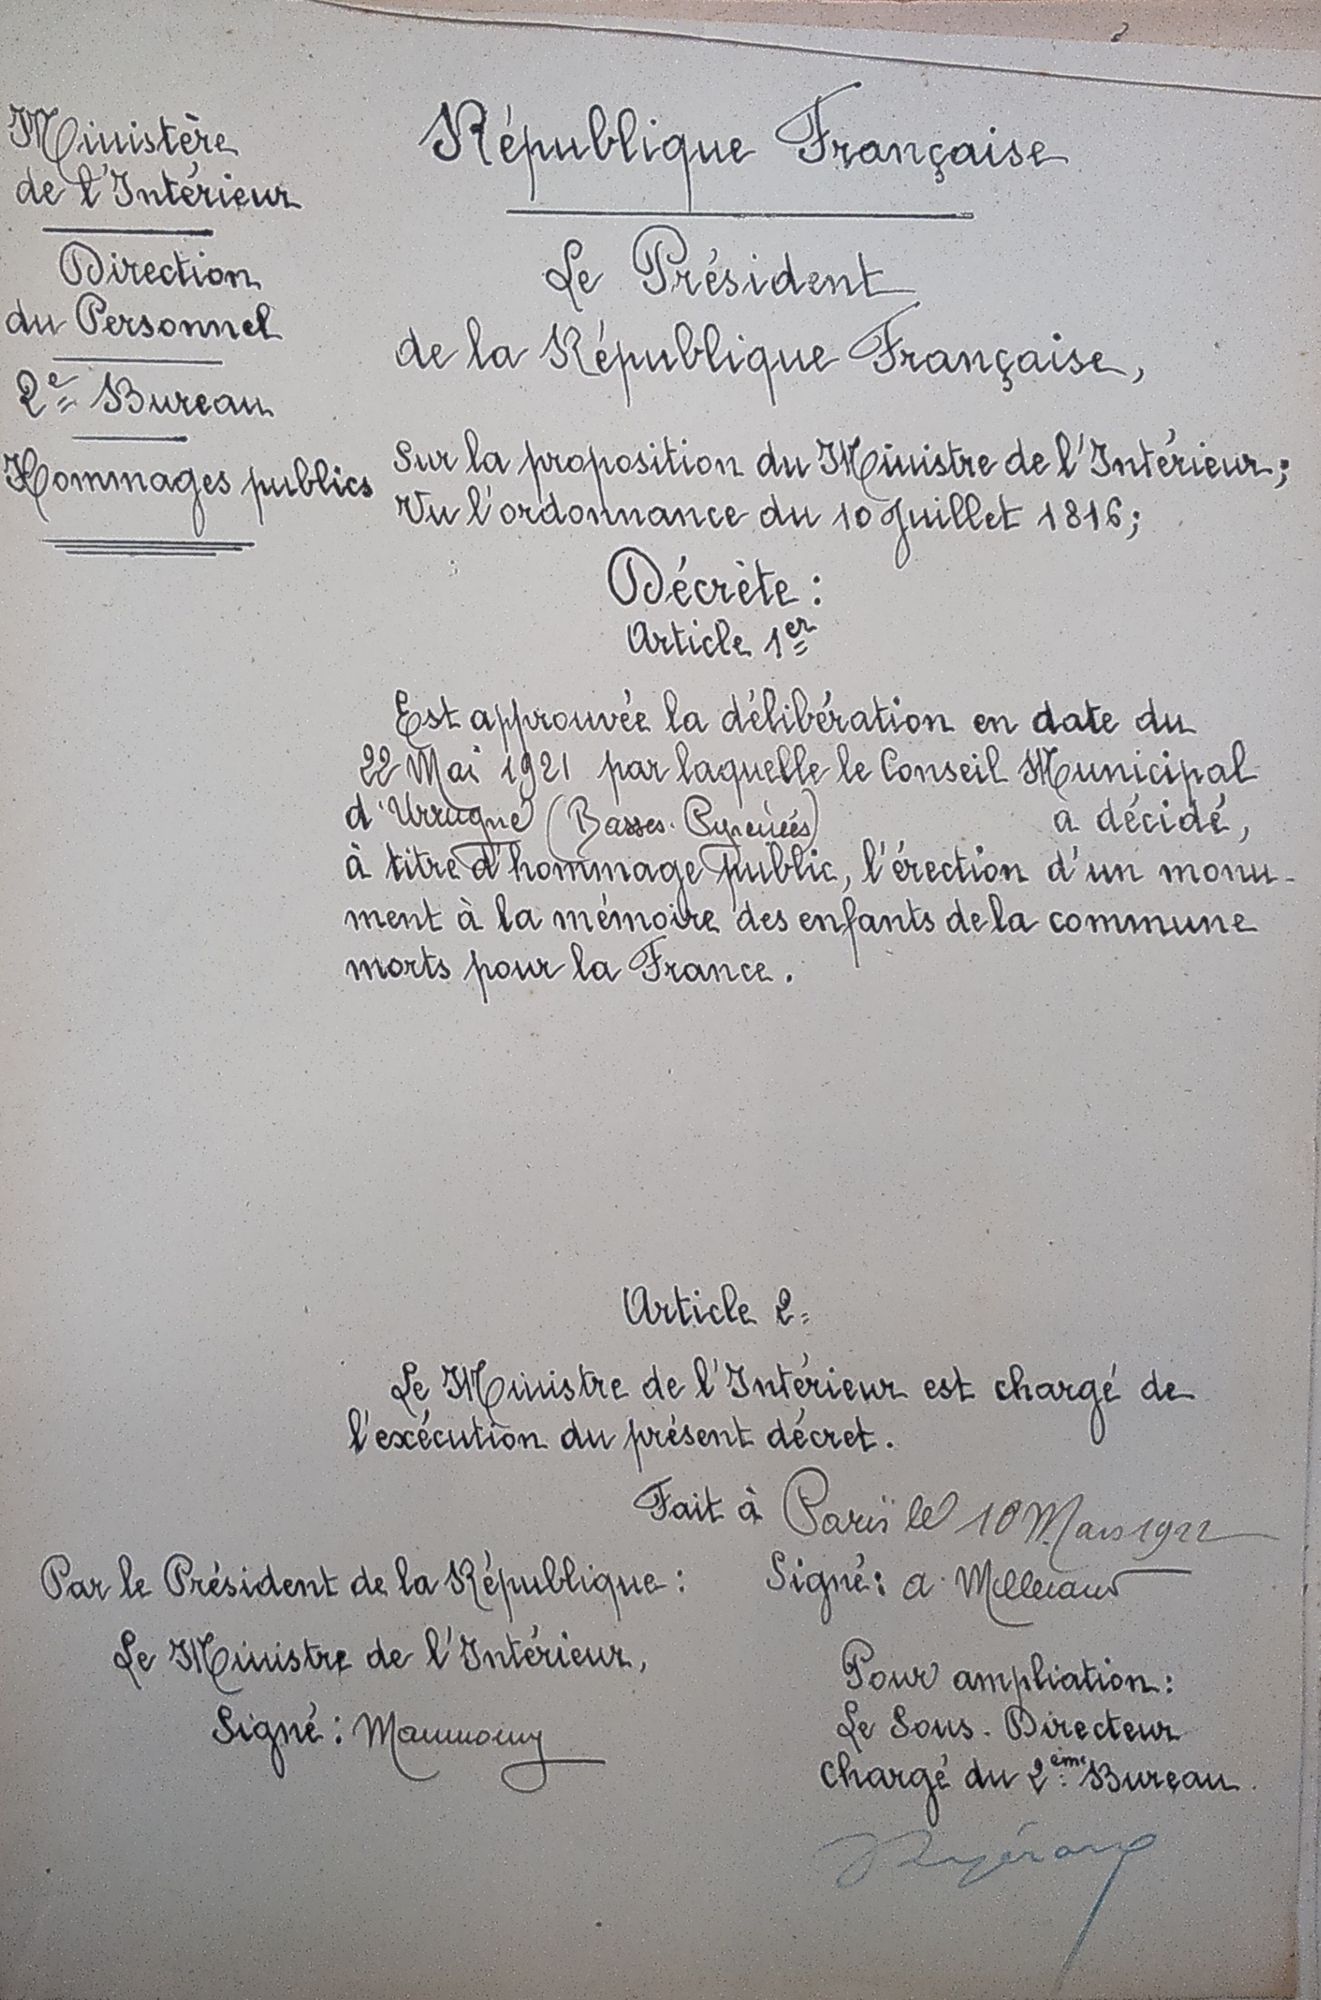 Ministère
de l'Intérieur
Direction
du Personnel
2e Bureau
Hommages publics
République Française
Le Président
de la République Française,
Sur la proposition du Ministre de l'Intérieur;
Vu l'ordonnance du 10 Juillet 1816;
Décrète :
Article 1er
Est approuvée la délibération en date du
22 Mai 1921 par laquelle le Conseil Municipal
d'Urrugne (Basses-Pyrénées) a décidé,
à titre d'hommage public, l'érection d'un monu-
ment à la mémoire des enfants de la commune
morts pour la France.
Article 2
Le Ministre de l'Intérieur est chargé de
l'exécution du présent décret.
Fait à Paris le 10 Mars 1922
Signé : A. Millerand
Par le Président de la République :
Le Ministre de l'Intérieur,
Signé : Maunoury
Pour ampliation :
Le Sous-Directeur
chargé du 2ème Bureau